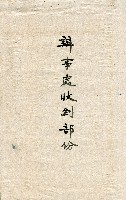 辦事處收到部份